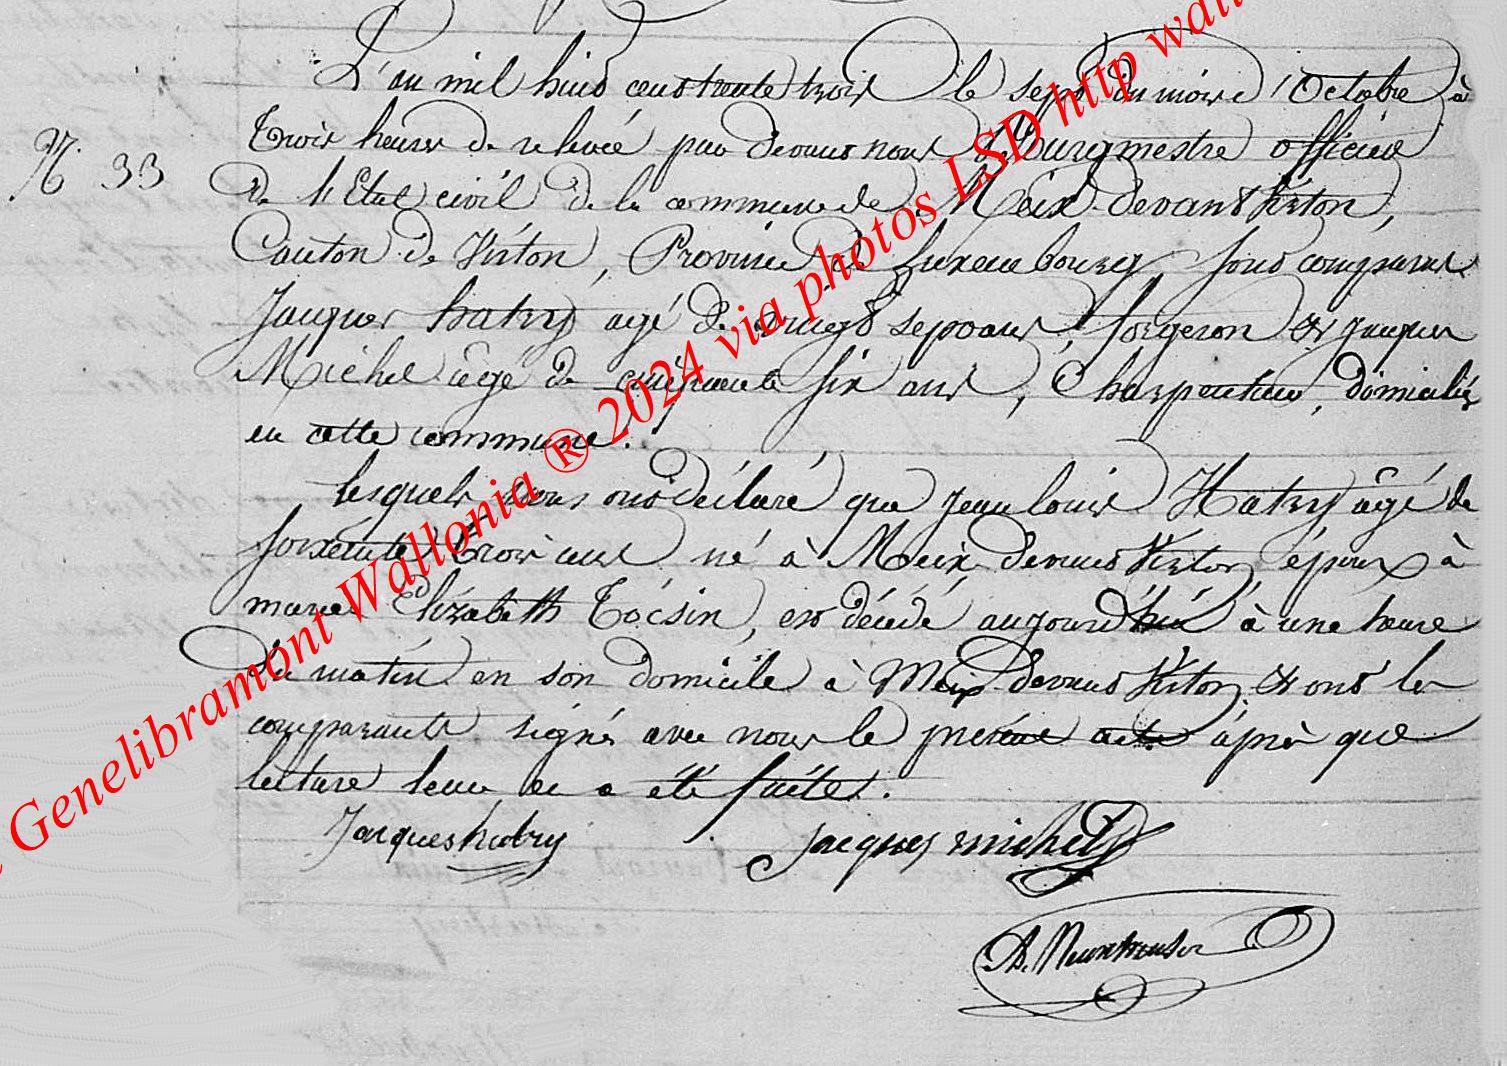 L'an mil huit cent trente trois le sept du mois d'Octobre à
trois heures de relevée par devant nous Burgmestre officier
N° 33
de l'Etat civil de la commune de Meix-devant Virton,
Canton de Virton, Province de Luxembourg, sont comparus
Jacques hatry agé de vingt sept ans, forgeron et jacques
Michel âgé de cinquante six ans, Charpentier, domiciliés
en cette commune.
lesquels nous ont déclaré que jean louis Hatry âgé de
soixente trois ans né à Meix devant Virton, époux à
marie Elizabeth Tocsin, est décédé aujourd'hui à une heure
du matin en son domicile à Meix-devant Virton, et ont les
comparants signés avec nous le présent acte après que
lecture leur en a été faite.
Jacques hatry jacques michel
Genelibramont Wallonia ® 2024 via photos LSD http wall